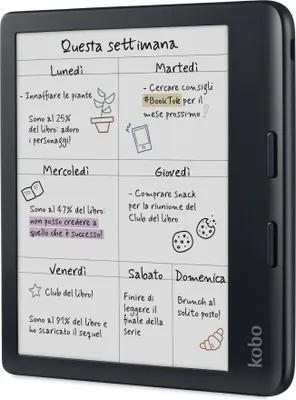 Questa settimana
Lunedì
- Innaffiare le piante
Sono al 25%
del libro: adoro
i personaggi!
Martedì
- Cercare consigli
#BookTok per il
mese prossimo!
Mercoledì
Sono al 47% del libro:
non posso credere a
quello che è successo!
Giovedì
- Comprare Snack
per la riunione del
Club del libro
Venerdì
Club del libro!
Sono al 91% del libro e
ho scaricato il sequel!
Sabato
Finire di
leggere il
finale della
Serie
Domenica
Brunch al
solito posto!
kobo